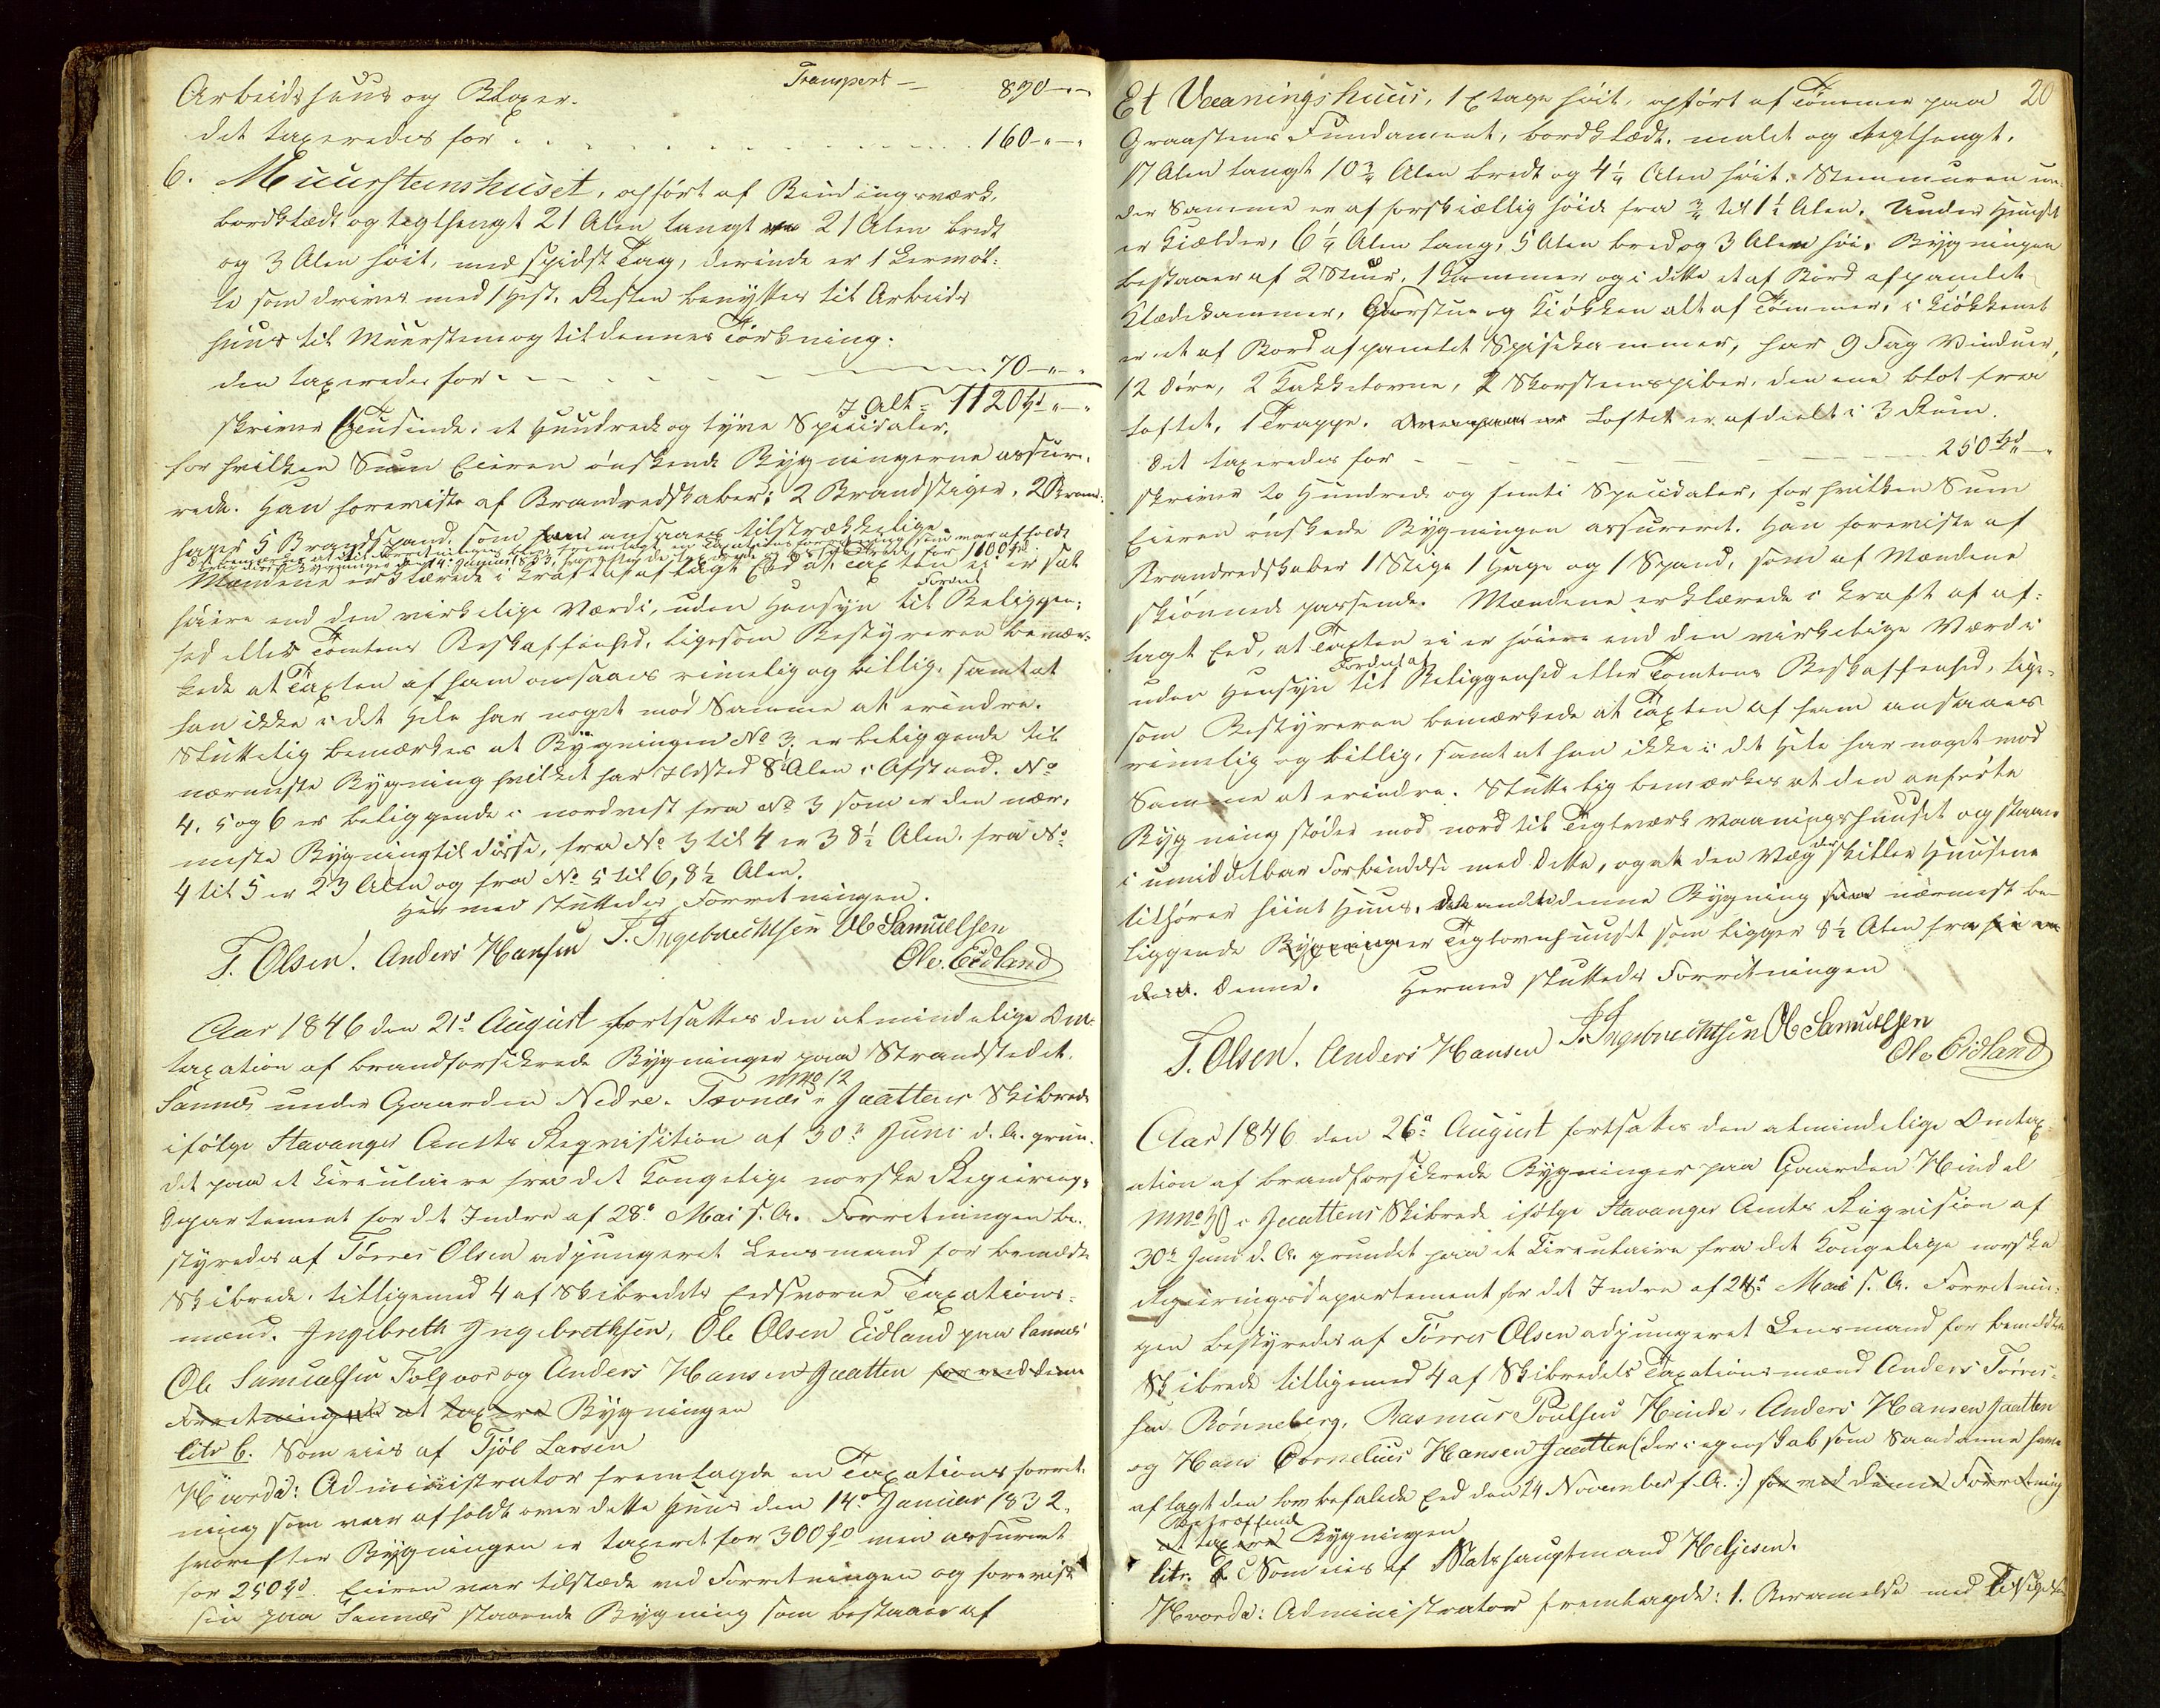 Transport — 890-"-
Arbeidshuus og Bloxer.
det taxeredes for . . . . . . 160-"-"
6. Muursteenshuset, opført af Bindingsværk,
bordklædt og teglhengt 21 Alen langt 21 Alen bredt
og 3 Alen høit, med spidst Tag, derinde er 1 Leermøl:
le som drives med 1 Hest. Resten benyttes til Arbeids
huus til Muursteen og til dennes Tørkning.
den taxeredes for . . . 70-"-"
I Alt = 1120 Spd "-"
skriver Eettusinde, et Hundrede og tyve Speciedaler,
for hvilken Sum Eieren ønskede Bygningerne assure-
rede. Han foreviste af Brandredskaber: 2 Brandstiger, 2 Brand-
hager 5 Brandspand, som ansaaes tilstrækkelige.
Mændene erklærede i Kraft af aflagt Eed at Taxten ei er sat
høiere end den virkelige Værdi, uden Hensyn til Fordeel Beliggen-
hed eller Tomtens Beskaffenhed, ligesom Bestyreren bemær-
kede at Taxten af ham ansaaes rimelig og billig, samt at
han ikke i det Hele har noget mod Samme at erindre.
Sluttelig bemærkes at Bygningen No 3. er beliggende til
nærmeste Bygning hvilket har Ildsted 8½ Alen i Afstand. No
4, 5 og 6 er beliggende i nordvest fra No 3 som er den nær-
meste Bygning til disse, fra No 3 til 4 er 38½ Alen. fra No
4 til 5 er 23 Alen og fra No 5 til 6, 8½ Alen.
Hermed sluttedes Forretningen.
T. Olsen. Anders Hansen I. Ingebrechtsen Ole Samuelsen
Ole. Eidland
Aar 1846 den 21de August fortsattes den almindelige Om-
taxation af brandforsikrede Bygninger paa Strandstedet
Sannes under Gaarden Nedre. Tronæs MNo 12 i Jaattens Skibrede
ifølge Stavanger Amts Reqvisition af 30te Juni d. A. grun-
det paa et Circulaire fra det Kongelige norske Regierings-
Departement for det Indre af 28de Mai s. A. Forretningen be-
styredes af Tørres Olsen adjungeret Lensmand for bemeldte
Skibrede, tilligemed 4 af Skibredets Eedsvorne Taxations-
mænd. Ingebreth Ingebrethsen, Ole Olsen Eidland paa Sannes
Ole Samuelsen Folqvor og Anders Hansen Jaatten for ved denne
Forretning at taxere Bygningen
litr b. Som eies af Tjøl Larsen
Hvorda: Administrator fremlagde en Taxationsforret-
ning som var afholdt over dette Huus den 14de Januar 1832,
hvorefter Bygningen er taxeret for 300 Spd men assureret
for 250 Spd. Eieren var tilstæde ved Forretningen og foreviste
sin paa Sannes staaende Bygning som bestaaer af
20
Et Vaaningshuus, 1 Etage høit, opført af Tømmer paa
Graasteens Fundament, bordklædt, malet og teglhengt.
17 Alen langt 10¾ Alen bredt og 4¼ Alen høit. Steenmuren un-
der Samme er af forskiellig høide fra ¾ til 1½ Alen. Under Huuset
er Kielder, 6¼ Alen lang, 5 Alen bred og 3 Alen høi. Bygningen
bestaaer af 2 Stuer, 1 Kammer og i dette et af Bord afpanelet
Klædekammer, Gvorstue og Kiøkken alt af Tømmer, i Kiøkkenet
er et af Bord afpanelet Spisekammer, har 9 Fag Vinduer,
12 Døre, 2 Kakkelovne, 2 Skorsteenspiber, den ene blot fra
Loftet, 1 Trappe. Loftet er afdeelt i 3 Rum.
det taxeredes for — — — 250 Spd "-"
skriver to Hundrede og femti Speciedaler, for hvilken Sum
Eieren ønskede Bygningen assureret. Han foreviste af
Brandredskaber 1 Stige 1 Hage og 1 Spand, som af Mændene
skiønnede passende. Mændene erklærede i Kraft af af-
lagt Eed, at Taxten ei er høiere end den virkelige Værdi
uden Hensyn til Fordeel af Beliggenhed eller Tomtens Beskaffenhed, lige-
som Bestyreren bemærkede at Taxten af ham ansaaes
rimelig og billig, samt at han ikke i det Hele har noget mod
Samme at erindre. Sluttelig bemærkes at den anførte
Bygning støder mod nord til Teglværk Vaaningshuuset og staaer
i umiddelbar Forbindelse med dette, og at den Væg der skiller Huusene
tilhører hiint Huus. denne Bygning nærmest be-
liggende Bygning er Teglovnhuuset som ligger 8½ Alen fra
denne. Hermed sluttedes Forretningen
T. Olsen. Anders Hansen I. Ingebrechtsen Ole Samuelsen
Ole Eidland
Aar 1846 den 26de August fortsattes den almindelige Omtax-
ation af brandforsikrede Bygninger paa Gaarden Hindal
MNo 30 i Jaattens Skibrede ifølge Stavanger Amts Reqvision af
30te Juni d. A. grundet paa et Circulaire fra det Kongelige norske
Regieringsdepartement for det Indre af 28de Mai s. A. Forretnin-
gen bestyredes af Tørres Olsen adjungeret Lensmand for bemeldte
Skibrede tilligemed 4 af Skibredets Taxationsmænd Anders Tørres-
sen Rønneberg, Rasmus Poulsen Hinde, Anders Hansen Jaatten
og Hans Cornelius Hansen Jaatten (der i egenskab som Saadanne have
aflagt den lovbefalede Eed den 24 November f. A.:) for ved denne Forretning
Betræffende
at taxere Bygningen
litr. C Som eies af Statshauptmand Heljesen.
Hvorda: Administrator fremlagde: 1. Berammelse med